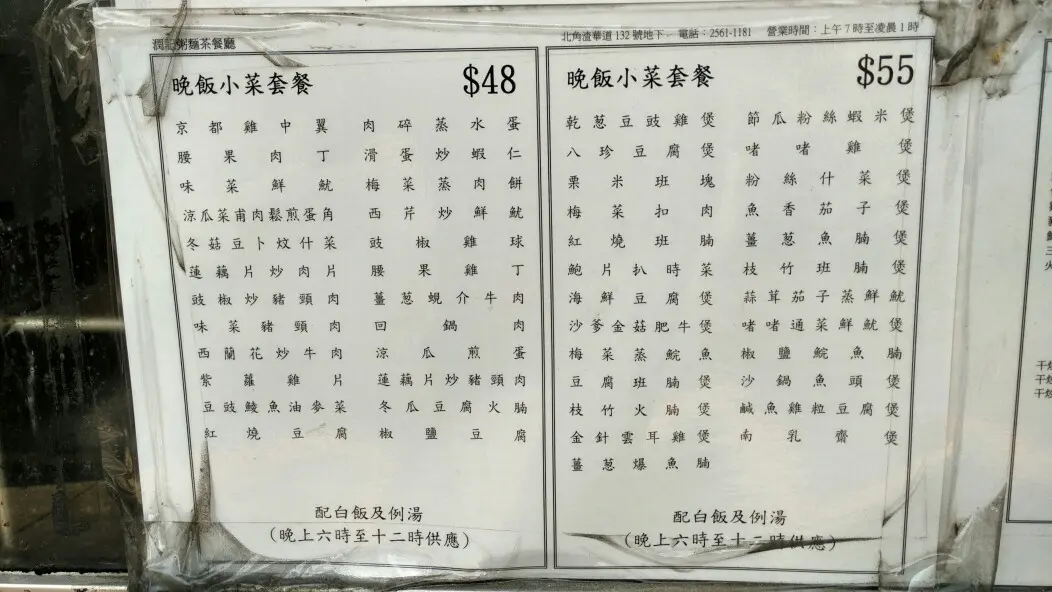 潤記粥麵茶餐廳
北角渣華道132號地下 電話：2561-1181 營業時間：上午7時至凌晨1時
晚飯小菜套餐 $48
京都雞中翼 肉碎蒸水蛋
腰果肉丁 滑蛋炒蝦仁
味菜鮮魷 梅菜蒸肉餅
涼瓜菜甫肉鬆煎蛋角 西芹炒鮮魷
冬菇豆卜炆什菜 豉椒雞球
蓮藕片炒肉片 腰果雞丁
豉椒炒豬頸肉 薑葱蜆介牛肉
味菜豬頸肉 回鍋肉
西蘭花炒牛肉 涼瓜煎蛋
紫蘿雞片 蓮藕片炒豬頸肉
豆豉鯪魚油麥菜 冬瓜豆腐火腩
紅燒豆腐 椒鹽豆腐
配白飯及例湯
（晚上六時至十二時供應）
晚飯小菜套餐 $55
乾葱豆豉雞煲 節瓜粉絲蝦米煲
八珍豆腐煲 啫啫雞煲
栗米班塊 粉絲什菜煲
梅菜扣肉 魚香茄子煲
紅燒班腩 薑葱魚腩煲
鮑片扒時菜 枝竹班腩煲
海鮮豆腐煲 蒜茸茄子蒸鮮魷
沙爹金菇肥牛煲 啫啫通菜鮮魷煲
梅菜蒸鯇魚 椒鹽鯇魚腩
豆腐班腩煲 沙鍋魚頭煲
枝竹火腩煲 鹹魚雞粒豆腐煲
金針雲耳雞煲 南乳齋煲
薑葱爆魚腩
配白飯及例湯
（晚上六時至十二時供應）